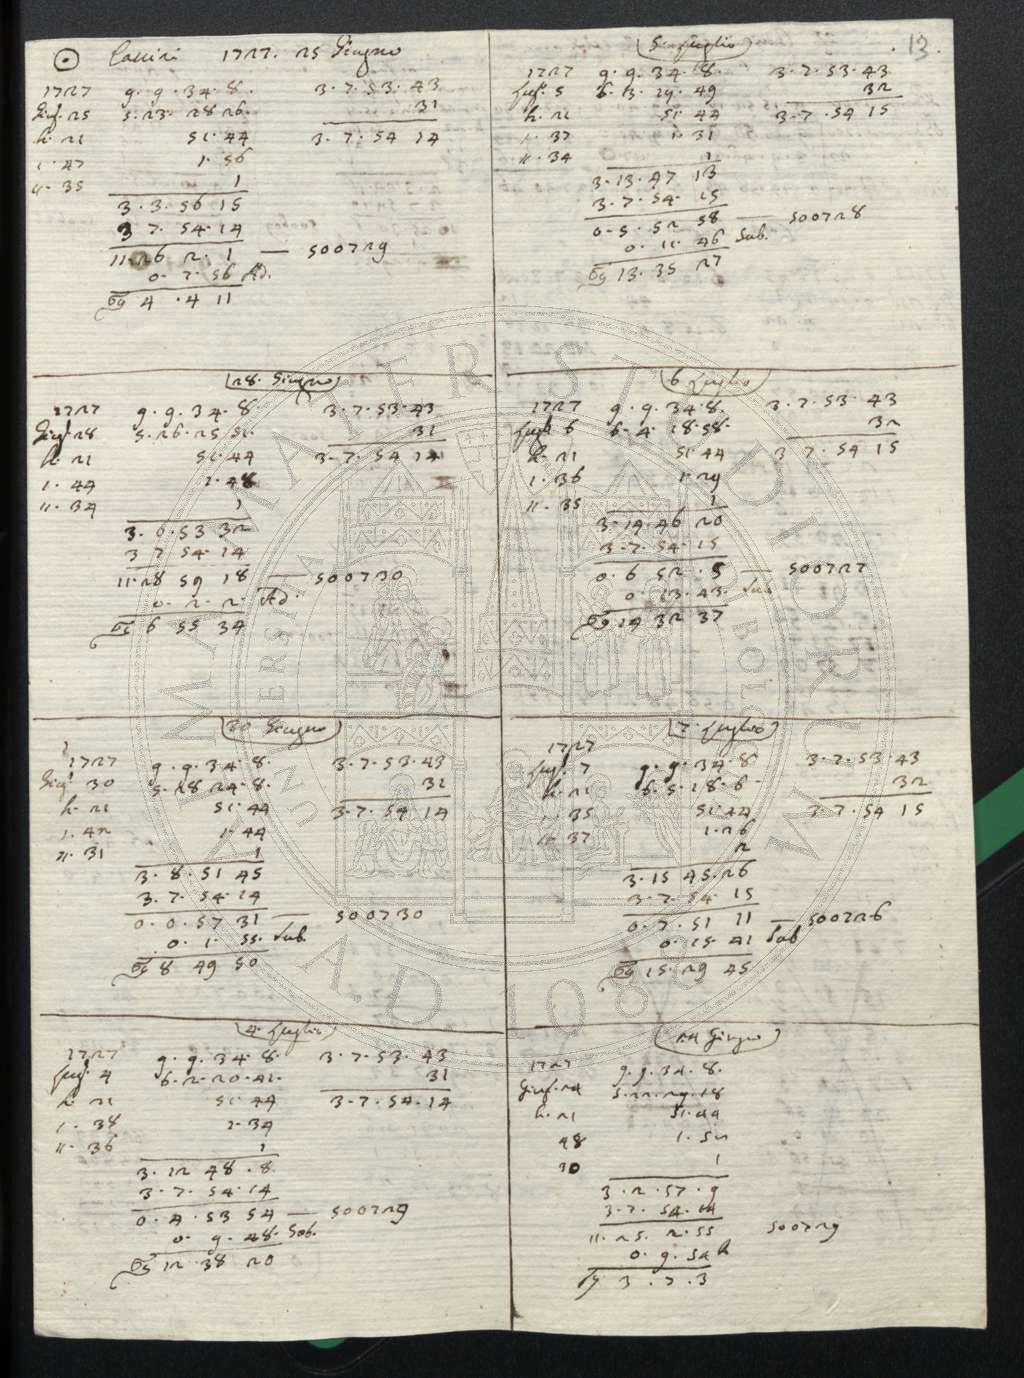 13.
☉ Cassini 1727. 25 Giugno
1727 9. 9. 34. 8. 3. 7. 53. 43
Giug. 25 5. 23. 28 26. 31
h. 21 51. 44 3. 7. 54 14
1. 47 1. 56
11. 35 1
3. 3. 56 15
3 7. 54. 14
11. 26 2. 1 — 500729
0. 7. 56 Ad.
♋ 4 . 4 11
28. Giugno
1727 9. 9. 34. 8. 3. 7. 53. 43
Giug. 28 5. 26. 25 51. 31
h. 21 51. 44 3. 7. 54 14
1. 44 1. 48
11. 34 1
3. 6. 53 32
3 7 54. 14
11. 28 59 18 — 500730
0. 2. 2. Ad.
♋ 6 55 34
30 Giugno
1727 9. 9. 34. 8. 3. 7. 53. 43
Giug. 30 5. 28 24. 8. 31
h. 21 51. 44 3. 7. 54 14
1. 42 1. 44
11. 31 1
3. 8. 51 45
3. 7. 54. 14
0. 0. 57 31 — 500730
0. 1. 55. Sub.
♋ 8 49 50
4. Luglio
1727 9. 9. 34. 8. 3. 7. 53. 43
Lugl. 4 6. 2. 20. 41. 31
h. 21 51. 44 3. 7. 54. 14
1. 38 1. 34
11. 36 1
3. 12 48 . 8
3. 7. 54. 14
0. 4. 53 54 — 500729
0. 9. 48. Sub.
♋ 12 38 20
5 Luglio
1727 9. 9. 34. 8. 3. 7. 53. 43
Lugl. 5 6. 3. 19. 49 32
h. 21 51. 44 3. 7. 54 15
1. 37 1. 31
11. 34 1
3. 13. 47 13
3. 7. 54. 15
0. 5. 52 58 — 500728
0. 11. 46 Sub.
♋ 13. 35 27
6 Luglio
1727 9. 9. 34. 8. 3. 7. 53. 43
Lugl. 6 6. 4. 18. 58. 32
h. 21 51. 44 3 7. 54 15
1. 36 1. 29
11. 35 1
3. 14. 46 20
3. 7. 54. 15
0. 6 52 . 5 — 500727
0. 13. 43. Sub
♋ 14 32 37
7. Luglio
1727 9. 9. 34. 8 3. 7. 53. 43
Lugl. 7 6. 5. 18. 6 32
h. 21 51. 44 3. 7. 54 15
1. 35 1. 26
11. 37 2
3. 15 45. 26
3. 7. 54. 15
0. 7. 51 11 — 500726
0. 15. 41 Sub
♋ 15. 29 45
24 Giugno
1727 9. 9. 34. 8.
Giug. 24 5. 22. 29. 18
h. 21 51. 44
48 1. 52
30 1
3. 2. 57. 9
3. 7. 54. 14
11. 25. 2. 55 500729
0. 9. 54
♋ 3 . 7 . 3
ALMA MATER STUDIORUM
UNIVERSITAS BONONIENSIS
A.D. 1088